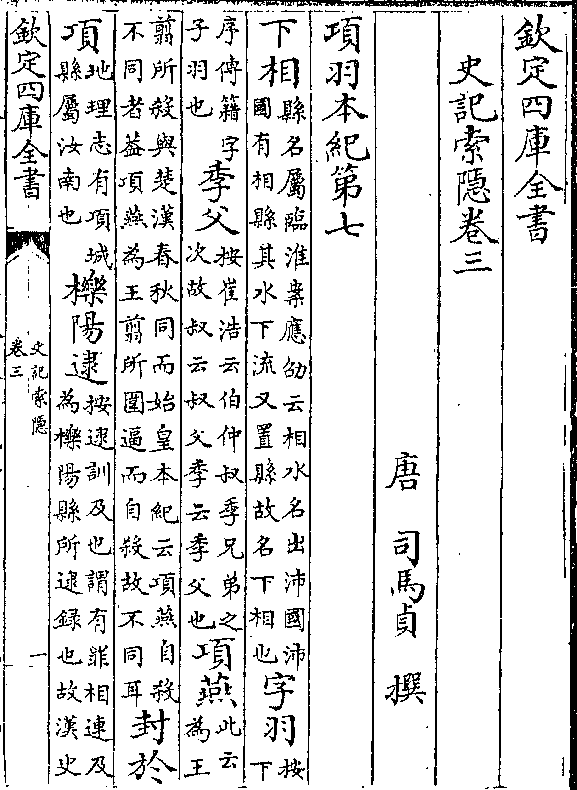 欽定四庫全書
史記索隱卷三
唐 司馬貞 撰
項羽本紀第七
下相縣名屬臨淮案應劭云相水名出沛國沛
國有相縣其水下流又置縣故名下相也字羽按下
序傳籍字
子羽也季父按崔浩云伯仲叔季兄弟之
次故叔云叔父季云季父也項燕此云
為王
翦所殺與楚漢春秋同而始皇本紀云項燕自殺
不同者葢項燕為王翦所圍逼而自殺故不同耳封於
項地理志有項城
縣屬汝南也櫟陽逮按逮訓及也謂有罪相連及
為櫟陽縣所逮録也故漢史
欽定四庫全書
史記索隱
卷三
一